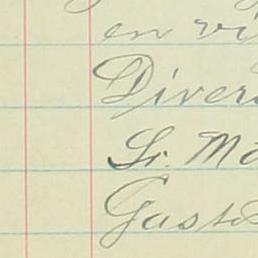 en vi
Divers
Sr. Mo
Gastos